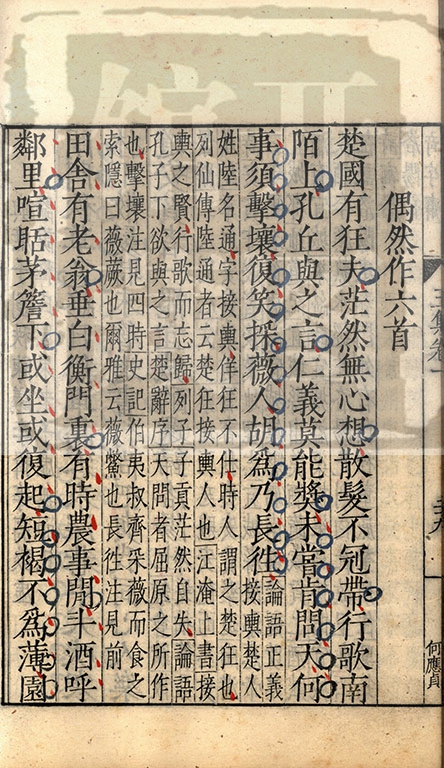 偶然作六首
楚國有狂夫茫然無心想散髮不冠帶行歌南
陌上孔丘與之言仁義莫能奬未嘗肯問天何
事須擊壤復笑採薇人胡爲乃長徃
論語正義
接輿楚人
姓陸名通字接輿佯狂不仕時人謂之楚狂也
列仙傳陸通者云楚狂接輿人也江淹上書接
輿之賢行歌而忘歸列子子貢茫然自失論語
孔子下欲與之言楚辭序天問者屈原之所作
也擊壤注見四時史記伯夷叔齊采薇而食之
索隱曰薇蕨也爾雅云薇虌也長徃注見前
田舍有老翁垂白衡門裏有時農事閒斗酒呼
鄰里喧聒茅簷下或坐或復起短褐不爲薄園
何應貞